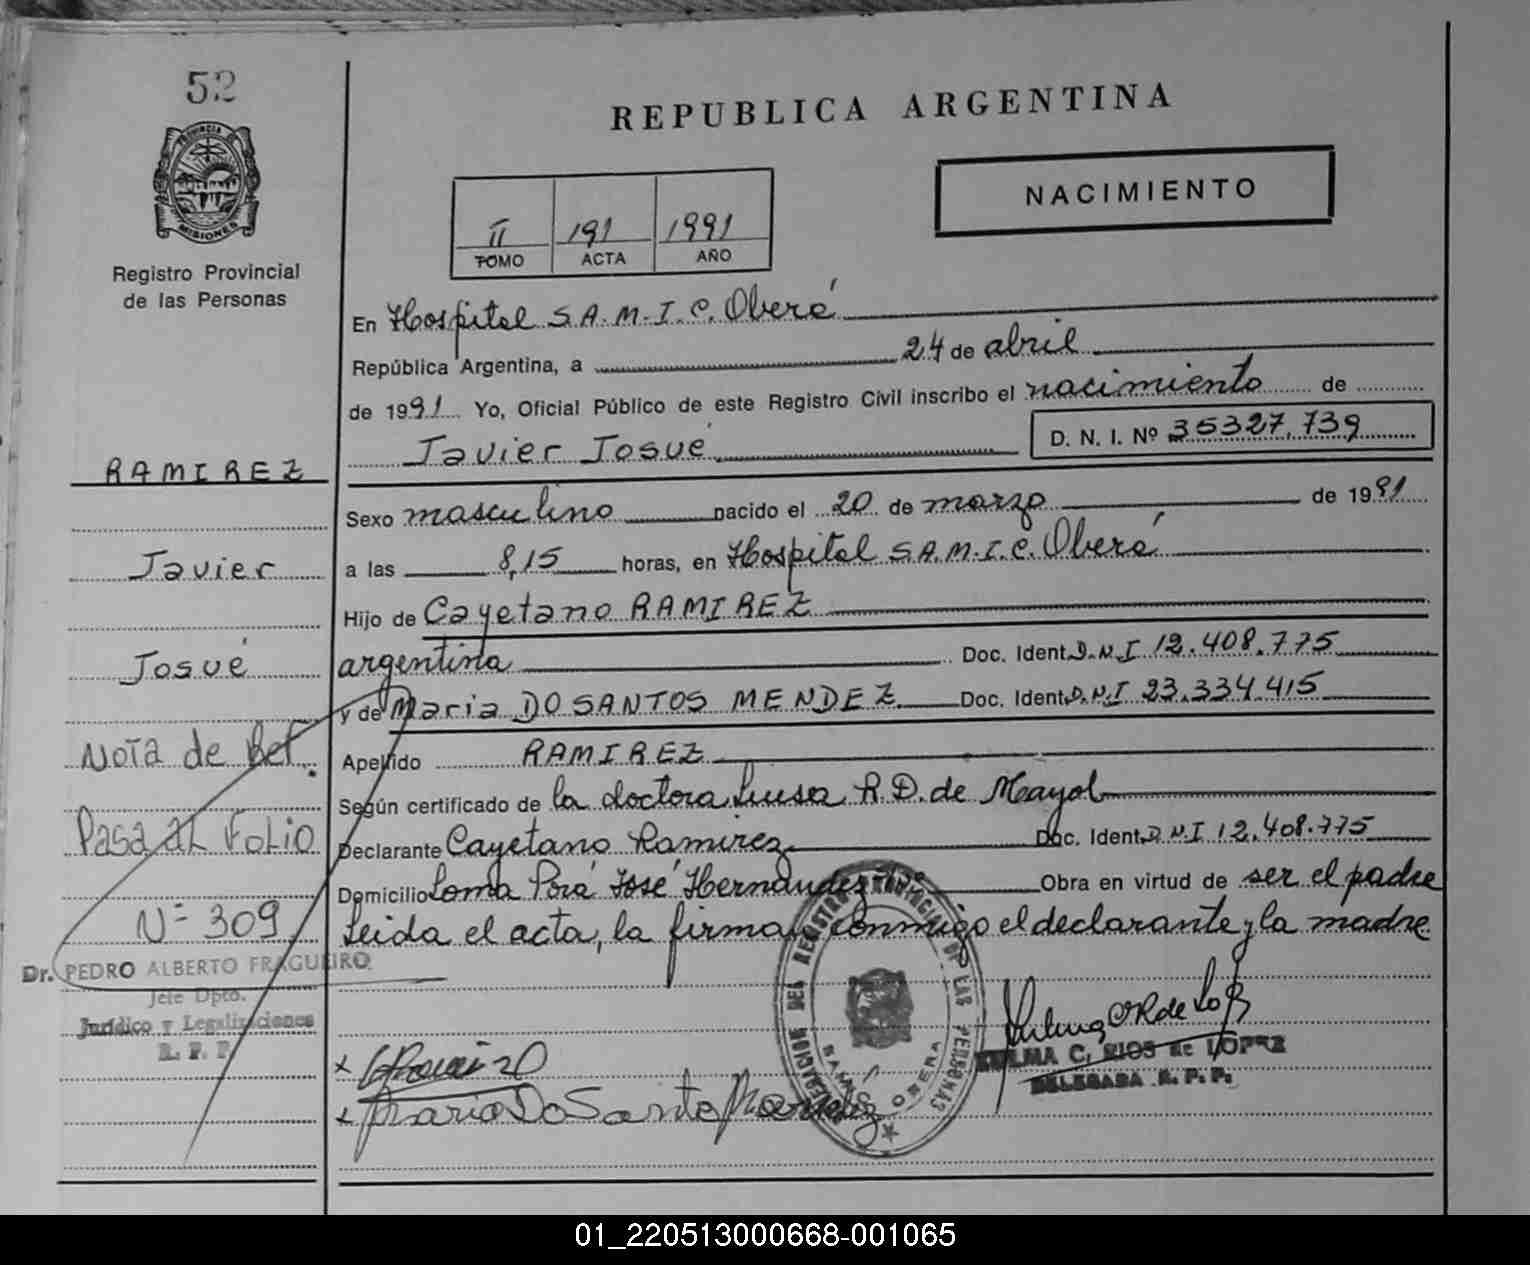 52
PROVINCIA DE
MISIONES
Registro Provincial
de las Personas
RAMIREZ
Javier
Josué
Nota de Ref.
Pasa al Folio
Nº 309
Dr. PEDRO ALBERTO FRAGUEIRO
Jefe Dpto.
Jurídico y Legalizaciones
R. P. P.
REPUBLICA ARGENTINA
NACIMIENTO
II 191 1991
TOMO ACTA AÑO
En Hospital S.A.M.I.C. Oberá
República Argentina, a 24 de abril
de 1991 Yo, Oficial Público de este Registro Civil inscribo el nacimiento de
Javier Josué D. N. I. Nº 35327.739
Sexo masculino nacido el 20 de marzo de 1991
a las 8,15 horas, en Hospital S.A.M.I.C. Oberá
Hijo de Cayetano RAMIREZ
argentina Doc. Ident. D.N.I 12.408.775
y de Maria DO SANTOS MENDEZ Doc. Ident. D.N.I 23.334.415
Apellido RAMIREZ
Según certificado de la doctora Luisa R. D. de Mayol
Declarante Cayetano Ramirez Doc. Ident. D.N.I 12.408.775
Domicilio Loma Porá José Hernández Obra en virtud de ser el padre
Leida el acta, la firman conmigo el declarante y la madre
DELEGACION DEL REGISTRO PROVINCIAL DE LAS PERSONAS
OBERA
ZULMA C. RIOS de LOPEZ
DELEGADA R. P. P.
01_220513000668-001065